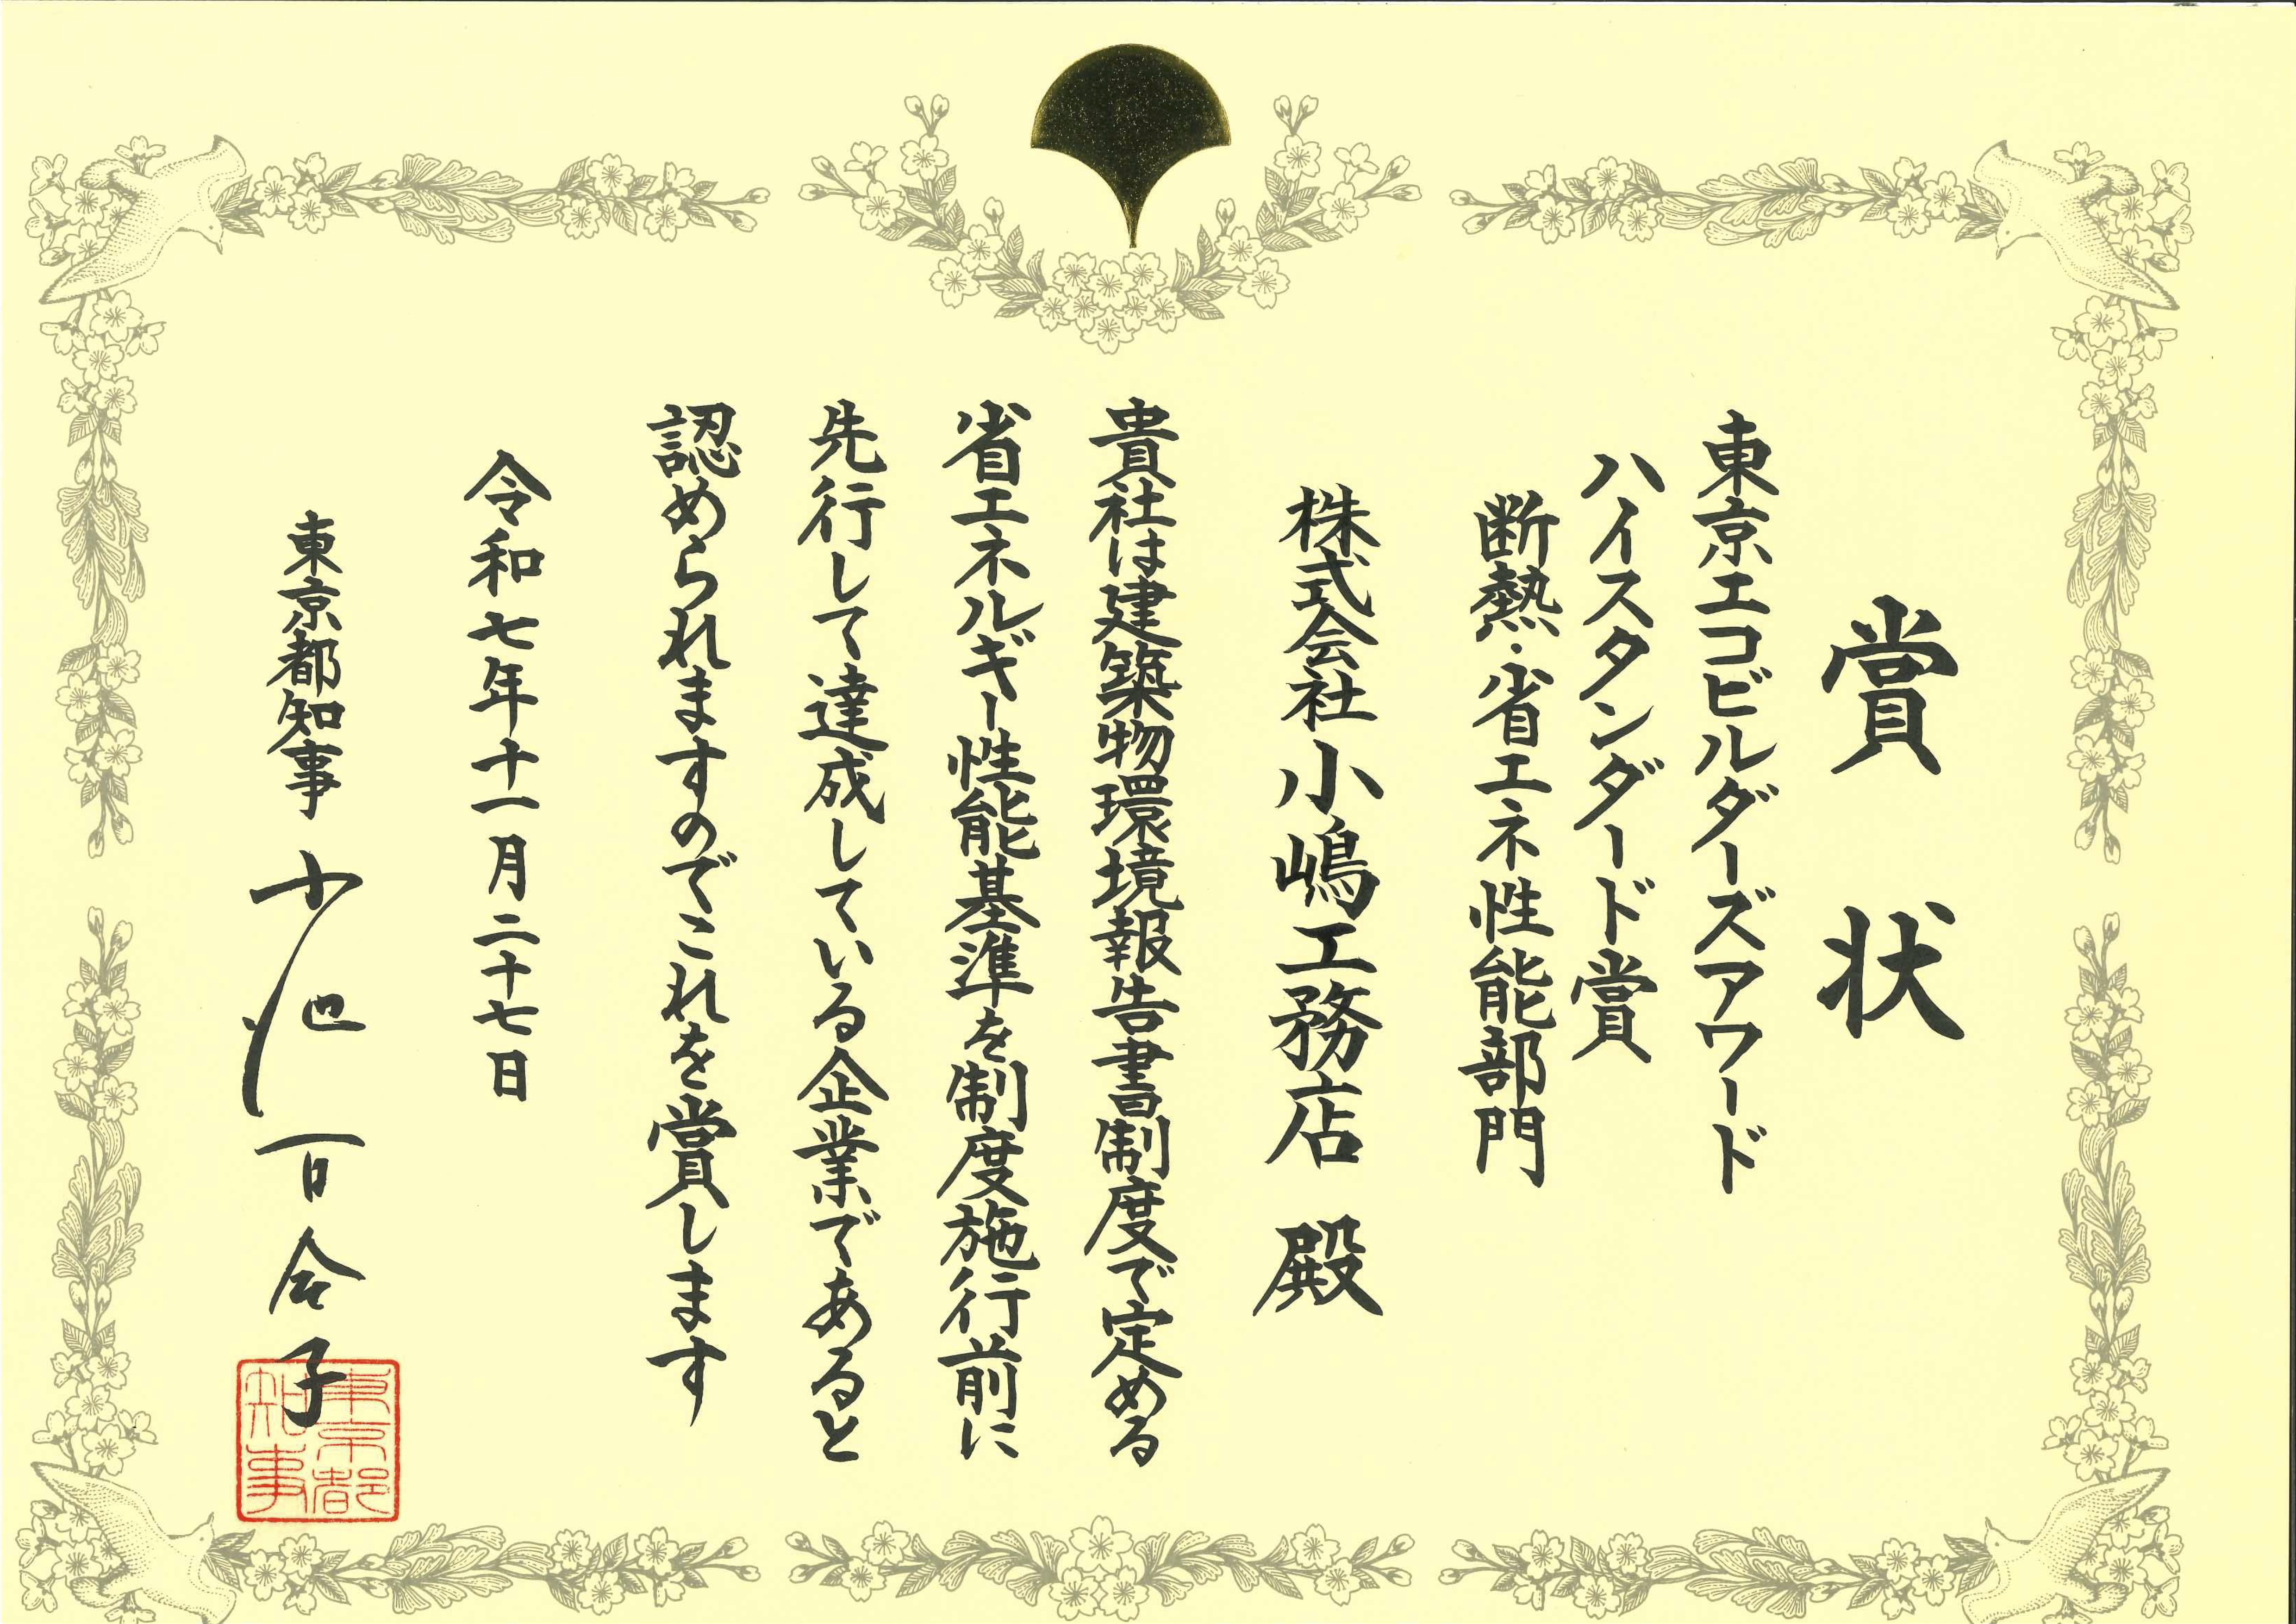 賞状
東京エコビルダーズアワード
ハイスタンダード賞
断熱・省エネ性能部門
株式会社小嶋工務店 殿
貴社は建築物環境報告書制度で定める
省エネルギー性能基準を制度施行前に
先行して達成している企業であると
認められますのでこれを賞します
令和七年十一月二十七日
東京都知事 小池百合子
東京都
知事